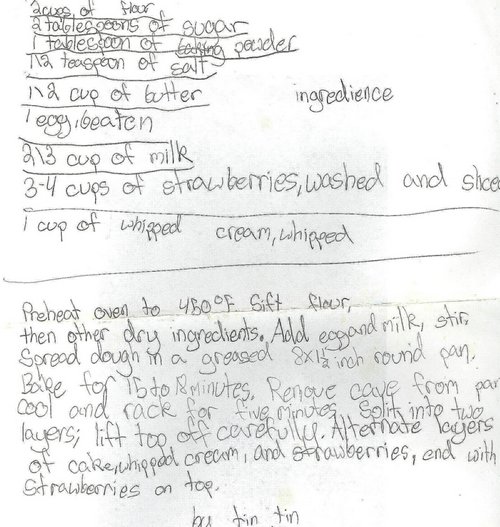 2 cups of flour
2 tablespoons of sugar
1 tablespoon of baking powder
1\2 teaspoon of salt
1\2 cup of butter ingredience
1 egg, beaten
2\3 cup of milk
3-4 cups of strawberries, washed and slice
1 cup of whipped cream, whipped
Preheat oven to 450°F Sift flour,
then other dry ingredients. Add egg and milk, stir.
Spread dough in a greased 8x1½ inch round pan.
Bake for 15 to 18 minutes. Remove cave from pan
cool and rack for five minutes. Split into two
layers; lift top off carefully. Alternate layers
of cake, whipped cream, and strawberries, end with
strawberries on top.
by tin tin